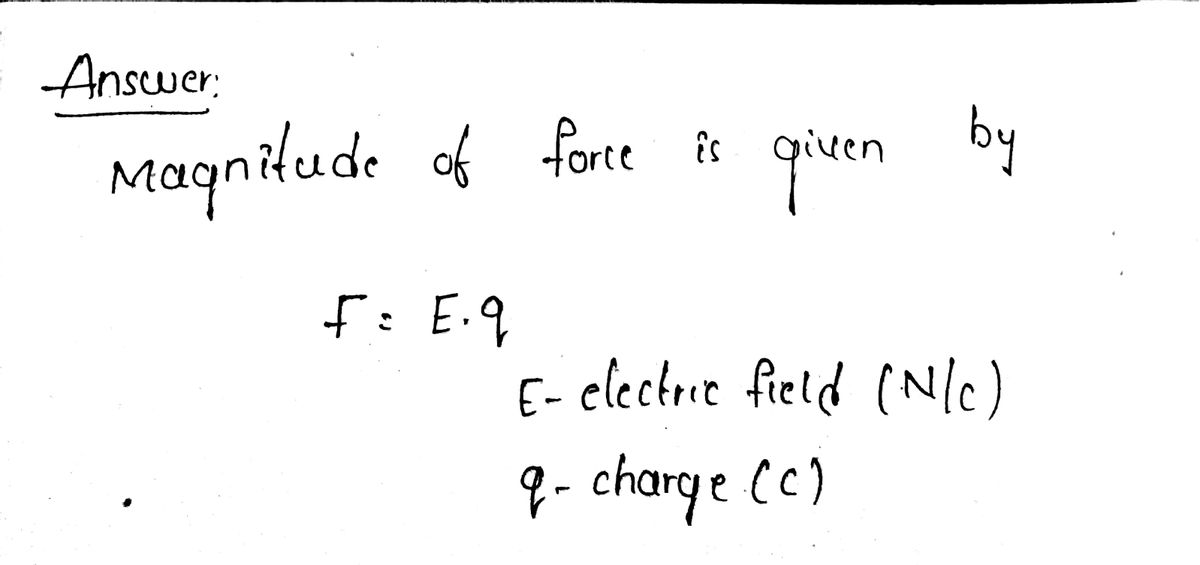 Answer:
Magnitude of force is given by
F = E.q
E- electric field (N/C)
q- charge (C)